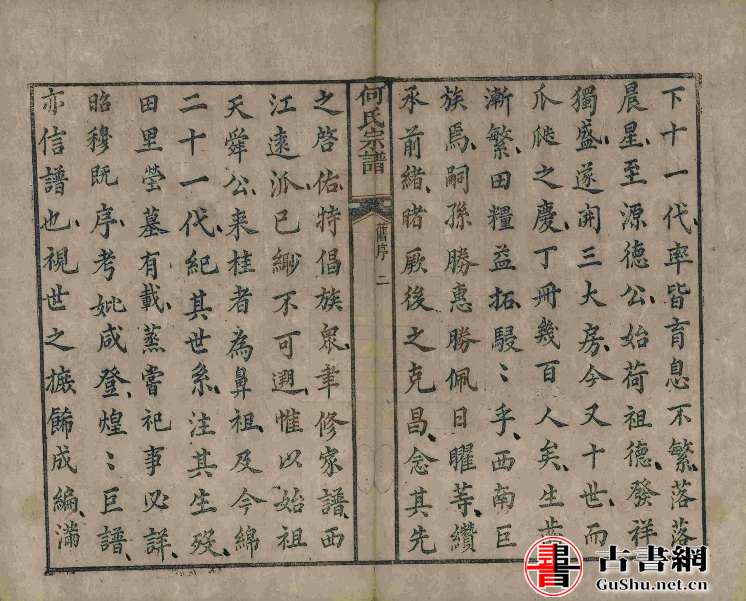 下十一代率皆育息不繁落落
晨星至源德公始荷祖德發祥
獨盛遂開三大房今又十世而
瓜瓞之慶丁冊幾百人矣生齒
漸繁田糧益拓駸〻乎西南巨
族焉嗣孫勝惠勝佩日曜等纘
承前緒睹厥後之克昌念其先
何氏宗譜
舊序 二
之啓佑特倡族衆聿修家譜西
江遠派已緲不可遡惟以始祖
天舜公来桂者為鼻祖及今綿
二十一代紀其世系注其生殁
田里塋墓有載蒸嘗祀事必詳
昭穆既序考妣咸登煌〻巨譜
亦信譜也視世之摭餙成編滿
書 古書網
GuShu.net.cn